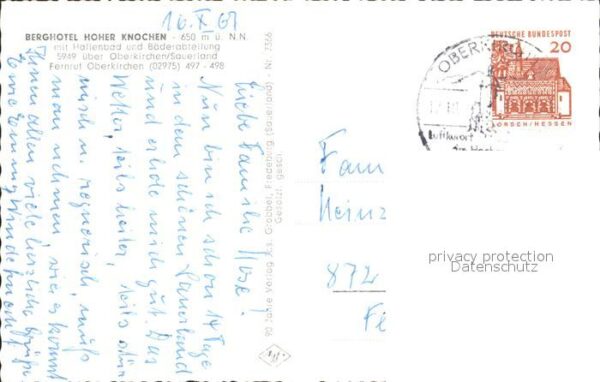 16.X.67
BERGHOTEL HOHER KNOCHEN - 650 m ü. N.N.
mit Hallenbad und Bäderabteilung
5949 über Oberkirchen/Sauerland
Fernruf Oberkirchen (02975) 497 - 498
Liebe Familie Hose!
Nun bin ich schon 14 Tage
in dem schönen Sauerland
und erhole mich gut. Das
Wetter, teils heiter, teils
u. regnerisch, muß
man nehmen, wie es kommt
Ihnen allen viele herzliche Grüße
90 Jahre Verlag Jos. Grobbel, Fredeburg (Sauerland) - Nr. 7366
Gesetzl. gesch.
DEUTSCHE BUNDESPOST
20
LORSCH/HESSEN
OBERKIR
Luftkurort
Fam
Heinz
872
Fe
privacy protection
Datenschutz